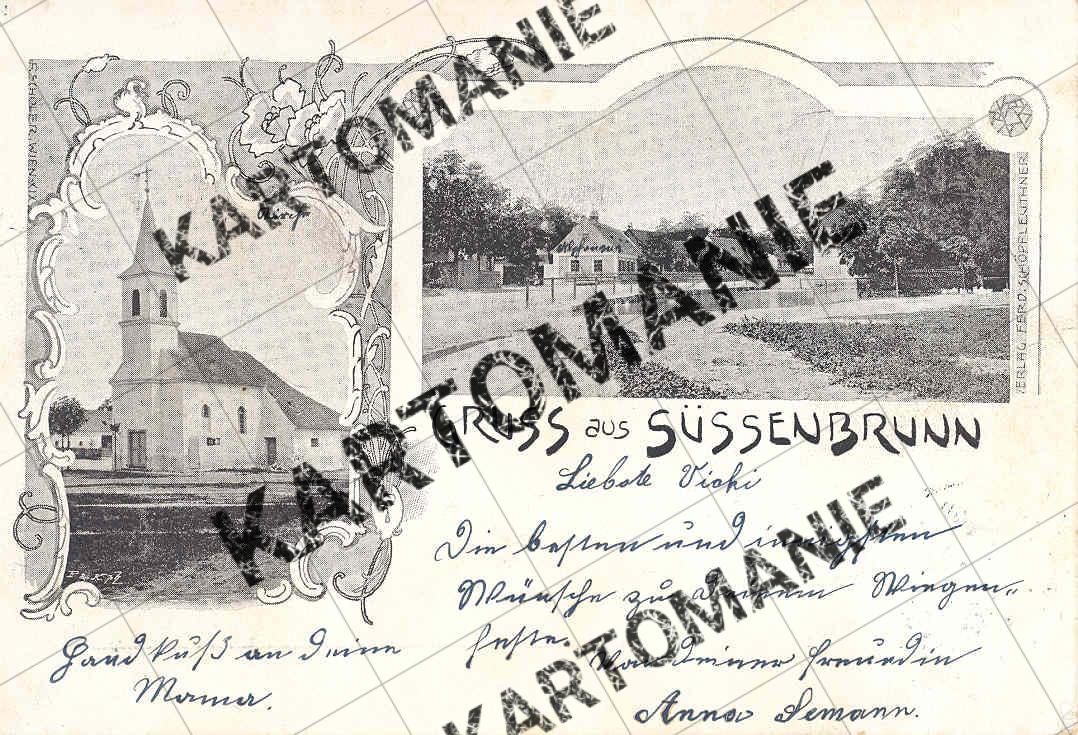 KARTOMANIE
KARTOMANIE
KARTOMANIE
KARTOMANIE
Kirche
VERLAG FERD. SCHÖPFLEUTHNER
GRUSS aus SÜSSENBRUNN
Liebste Vicki
Die besten und innigsten
Wünsche zu Deinem Wiegen-
feste.
Von deiner Freundin
Anna Semann.
Handkuß an deine
Mama.